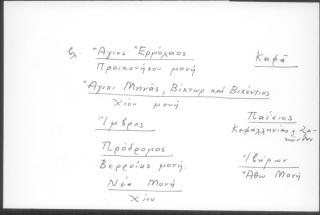 βλ. Ἅγιος Ἑρμόλαος
Προικονήσου μονή
Καφᾶ
Ἅγιοι Μηνᾶς, Βίκτωρ καὶ Βικέντιος
Χίου μονή
Ἴμβρος
Παΐσιος
Κεφαλληνίας Ζα-
κύνθου
Πρόδρομος
Βερροίας μονή
Ἰβήρων
Ἄθω Μονή
Νέα Μονή
Χίου